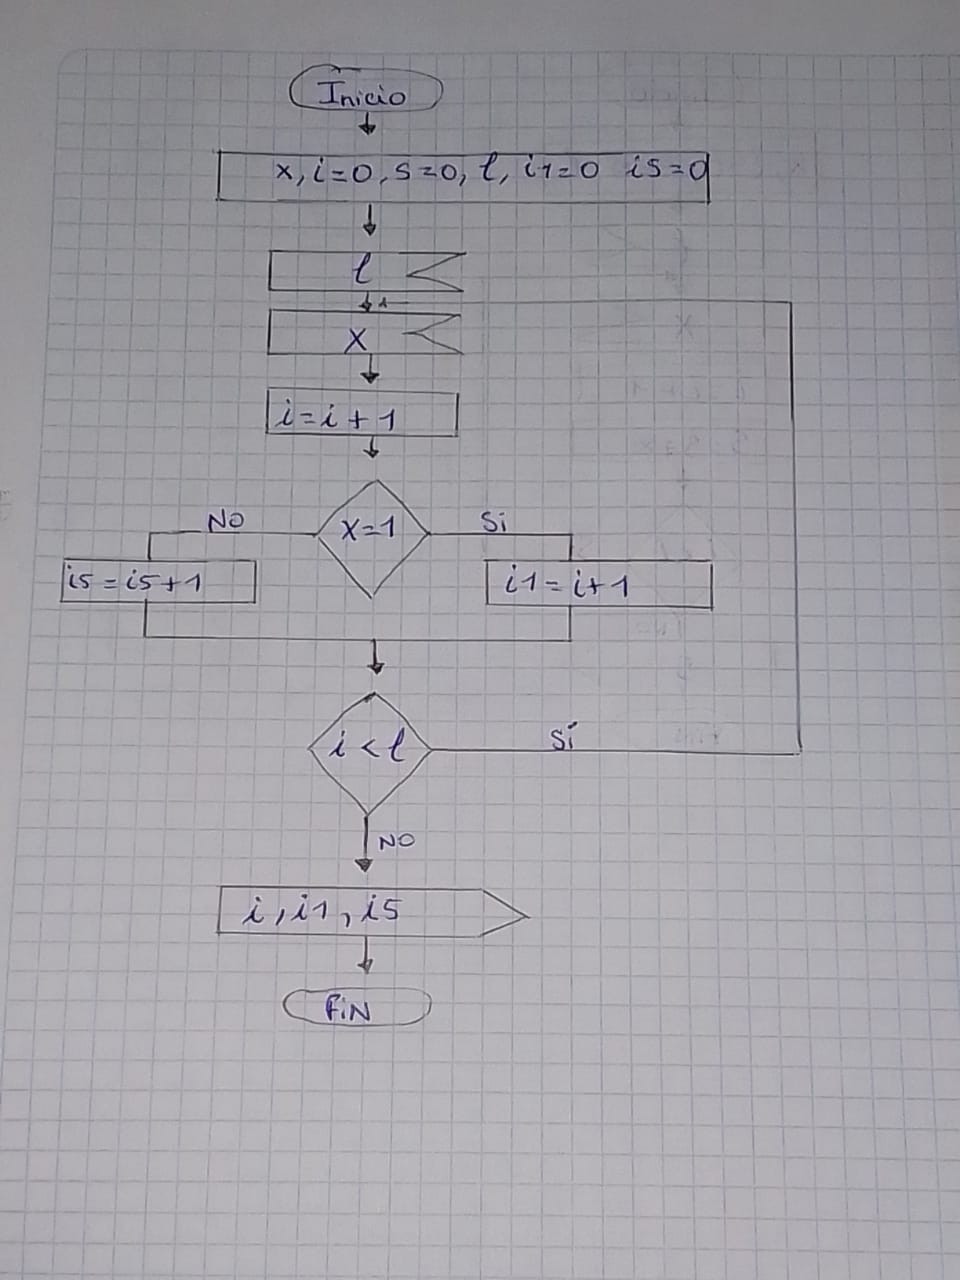 Inicio
x, i=0, s=0, l, i1=0 i5=0
l
x
i=i+1
x=1
NO
Si
i5=i5+1
i1=i+1
i<l
Sí
NO
i, i1, i5
FiN